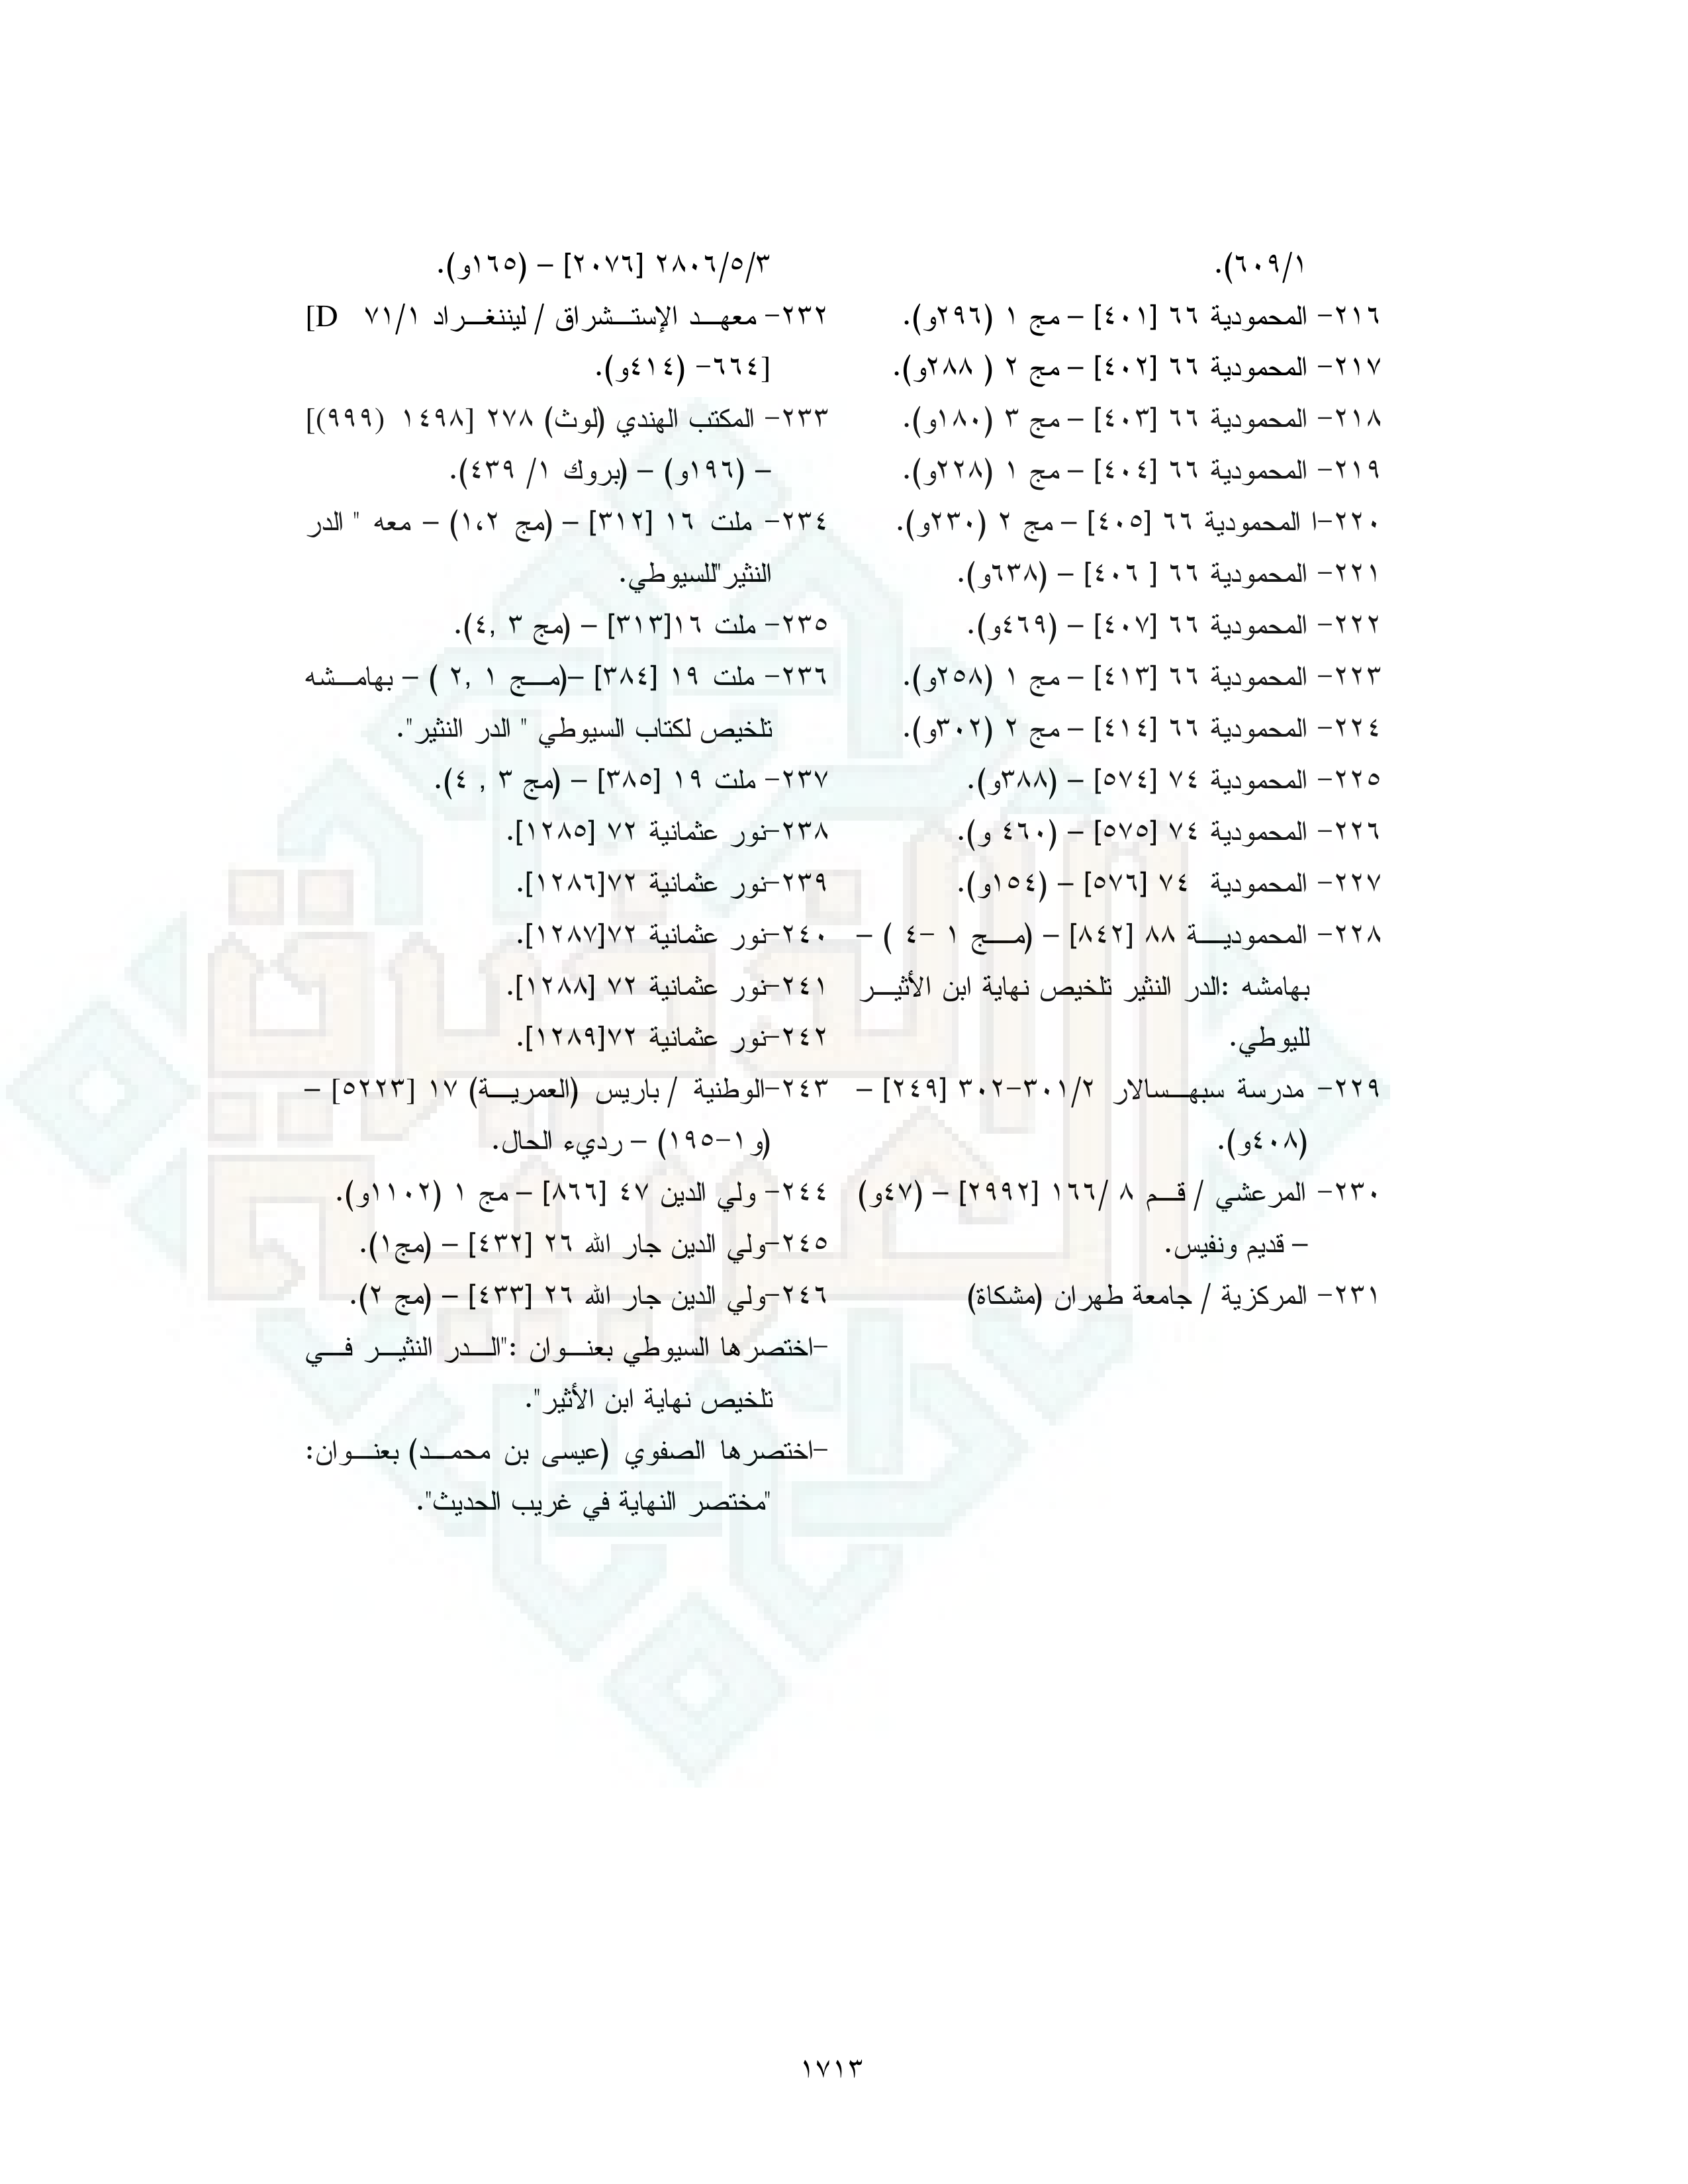 ٦٠٩/١).
٢١٦- المحمودية ٦٦ [٤٠١] – مج ١ (٢٩٦و).
٢١٧- المحمودية ٦٦ [٤٠٢] – مج ٢ ( ٢٨٨و).
٢١٨- المحمودية ٦٦ [٤٠٣] – مج ٣ (١٨٠و).
٢١٩- المحمودية ٦٦ [٤٠٤] – مج ١ (٢٢٨و).
٢٢٠-ا المحمودية ٦٦ [٤٠٥] – مج ٢ (٢٣٠و).
٢٢١- المحمودية ٦٦ [ ٤٠٦] – (٦٣٨و).
٢٢٢- المحمودية ٦٦ [٤٠٧] – (٤٦٩و).
٢٢٣- المحمودية ٦٦ [٤١٣] – مج ١ (٢٥٨و).
٢٢٤- المحمودية ٦٦ [٤١٤] – مج ٢ (٣٠٢و).
٢٢٥- المحمودية ٧٤ [٥٧٤] – (٣٨٨و).
٢٢٦- المحمودية ٧٤ [٥٧٥] – (٤٦٠ و).
٢٢٧- المحمودية ٧٤ [٥٧٦] – (١٥٤و).
٢٢٨- المحموديـــة ٨٨ [٨٤٢] – (مـــج ١ -٤ ) –
بهامشه :الدر النثير تلخيص نهاية ابن الأثيـــر
لليوطي.
٢٢٩- مدرسة سبهـــسالار ٣٠١/٢-٣٠٢ [٢٤٩] –
(٤٠٨و).
٢٣٠- المرعشي / قـــم ٨ /١٦٦ [٢٩٩٢] – (٤٧و)
– قديم ونفيس.
٢٣١- المركزية / جامعة طهران (مشكاة)
٢٨٠٦/٥/٣ [٢٠٧٦] – (١٦٥و).
٢٣٢- معهـــد الإستـــشراق / ليننغـــراد ٧١/١ D]
٦٦٤]- (٤١٤و).
٢٣٣- المكتب الهندي (لوث) ٢٧٨ [١٤٩٨ (٩٩٩)]
– (١٩٦و) – (بروك ١/ ٤٣٩).
٢٣٤- ملت ١٦ [٣١٢] – (مج ١،٢) – معه " الدر
النثير"للسيوطي.
٢٣٥- ملت ١٦[٣١٣] – (مج ٣ ,٤).
٢٣٦- ملت ١٩ [٣٨٤] –(مـــج ١ ,٢ ) – بهامـــشه
تلخيص لكتاب السيوطي " الدر النثير".
٢٣٧- ملت ١٩ [٣٨٥] – (مج ٣ , ٤).
٢٣٨-نور عثمانية ٧٢ [١٢٨٥].
٢٣٩-نور عثمانية ٧٢[١٢٨٦].
٢٤٠-نور عثمانية ٧٢[١٢٨٧].
٢٤١-نور عثمانية ٧٢ [١٢٨٨].
٢٤٢-نور عثمانية ٧٢[١٢٨٩].
٢٤٣-الوطنية / باريس (العمريـــة) ١٧ [٥٢٢٣] –
(و١-١٩٥) – رديء الحال.
٢٤٤- ولي الدين ٤٧ [٨٦٦] – مج ١ (١١٠٢و).
٢٤٥-ولي الدين جار الله ٢٦ [٤٣٢] – (مج١).
٢٤٦-ولي الدين جار الله ٢٦ [٤٣٣] – (مج ٢).
-اختصرها السيوطي بعنـــوان :"الـــدر النثيـــر فـــي
تلخيص نهاية ابن الأثير".
-اختصرها الصفوي (عيسى بن محمـــد) بعنـــوان:
"مختصر النهاية في غريب الحديث".
١٧١٣